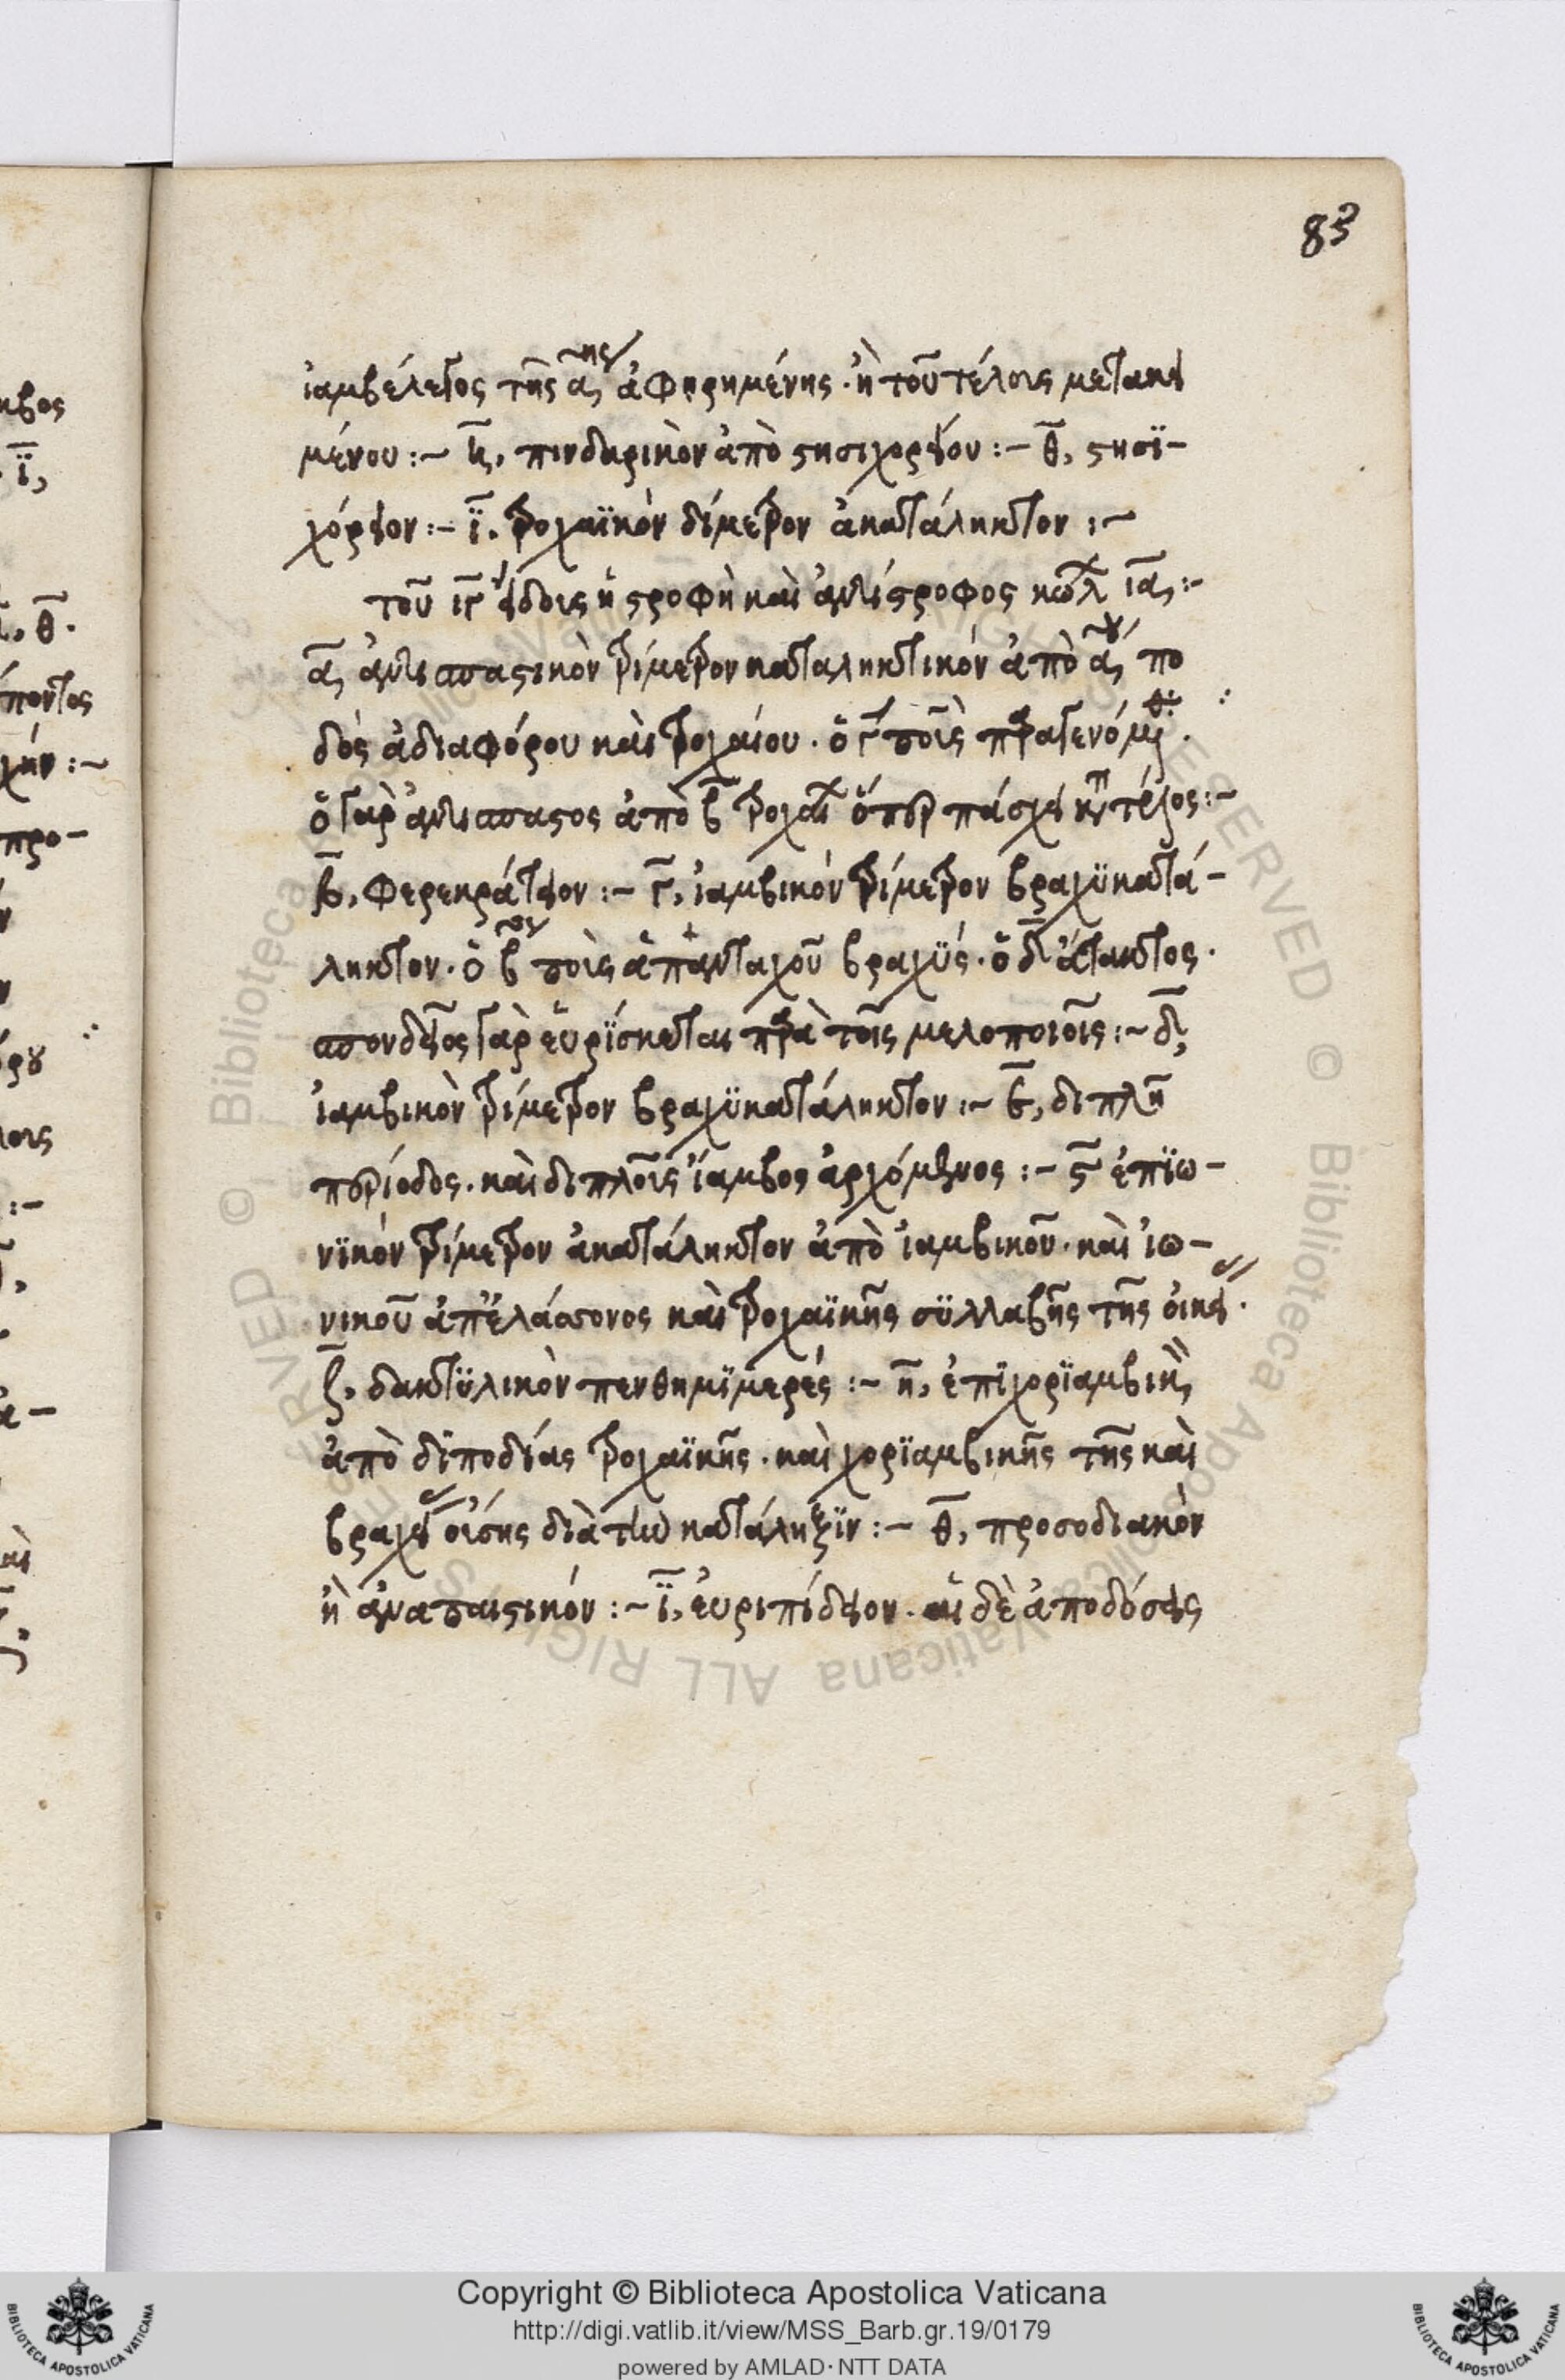 83
ἰαμβέλεγος τῆς α^ης ἀφηρημένης. ἢ τοῦ τέλους μετακει
μένου :~ η, πινδαρικὸν ἀπὸ στησιχορείου :~ θ, στησϊ-
χόρειον :~ ϊ. τροχαϊκὸν δίμετρον ἀκατάληκτον :~
τοῦ ιγ εἴδους ἡ στροφὴ καὶ ἀντίστροφος κώλ ια, :~
α, ἀντισπαστικὸν τρίμετρον καταληκτικόν ἀπὸ α^ου πο
δὸς ἀδιαφόρου καὶ τροχαίου. ὁ γ ποὺς
ὁ γὰρ ἀντισπαστος ἀπὸ β τροχαί ὅπερ πάσχει τέλος :~
β, φερεκράτειον :~ γ, ἰαμβικὸν τρίμετρον βραχϋκατά-
ληκτον. ὁ β ποὺς ἁπανταχοῦ βραχϋς. ὁ δ ἄτακτος.
σπονδεῖος γὰρ εὑρΐσκεται παρὰ τοῖς μελοποιοῖς :~ δ,
ἰαμβικὸν τρίμετρον βραχϋκατάληκτον :~ ε, διπλῆ
περίοδος. καὶ διπλοῦς ἴαμβος ἀρχόμενος :~ ς ἐπϊω-
νϊκὸν τρίμετρον ἀκατάληκτον ἀπὸ ἰαμβικοῦ. καὶ ἰω-
νικοῦ ἀπ' ἐλάσσονος καὶ τροχαϊκῆς σϋλλαβῆς τῆς οἰκεί.
ζ, δακτϋλικὸν πενθημϊμερές :~ η, ἐπϊχορϊαμβικ
ἀπὸ δϊποδίας τροχαϊκῆς. καὶ χορϊαμβικῆς τῆς καὶ
βραχεί οὔσης διὰ τὴν κατάληξϊν :~ θ, προσοδιακὸν
ἢ ἀναπαιστικόν :~ ϊ, εὐριπίδειον. αἱ δὲ ἀποδόσεις
Copyright © Biblioteca Apostolica Vaticana
http://digi.vatlib.it/view/MSS_Barb.gr.19/0179
powered by AMLAD · NTT DATA